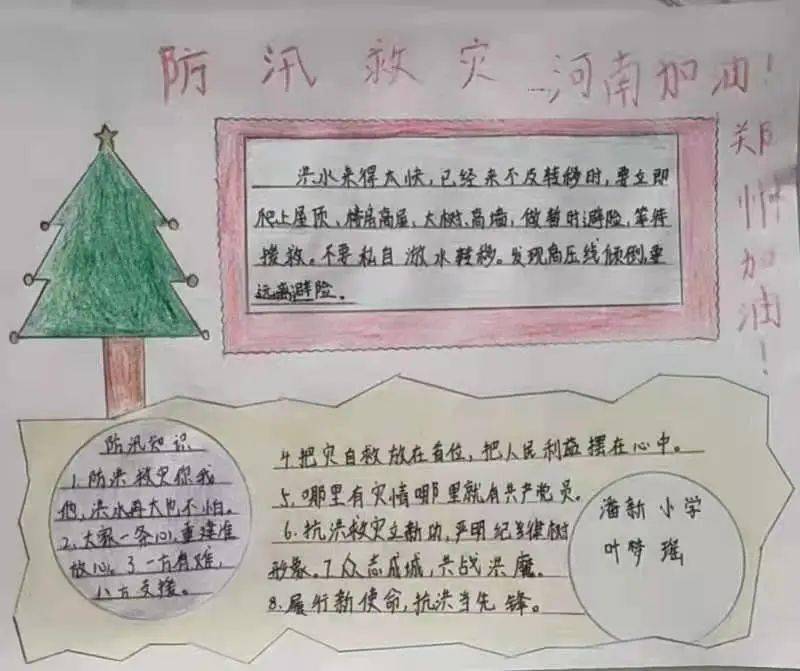 防汛救灾 河南加油!
郑州加油!
洪水来得太快,已经来不及转移时,要立即
爬上屋顶,楼层高屋,大树,高墙,做暂时避险,等待
援救。不要私自游水转移。发现高压线倾倒,要
远离避险。
防汛知识
1.防洪救灾你我
他,洪水再大也不怕。
2.大家一条心,重建准
放心。3一方有难,
八方支援。
4.把灾自救放在首位,把人民利益摆在心中。
5.哪里有灾情哪里就有共产党员。
6.抗洪救灾立新功,严明纪律树
形象。7众志成城,共战洪魔。
8.履行新使命,抗洪当先锋。
潘新小学
叶梦瑶